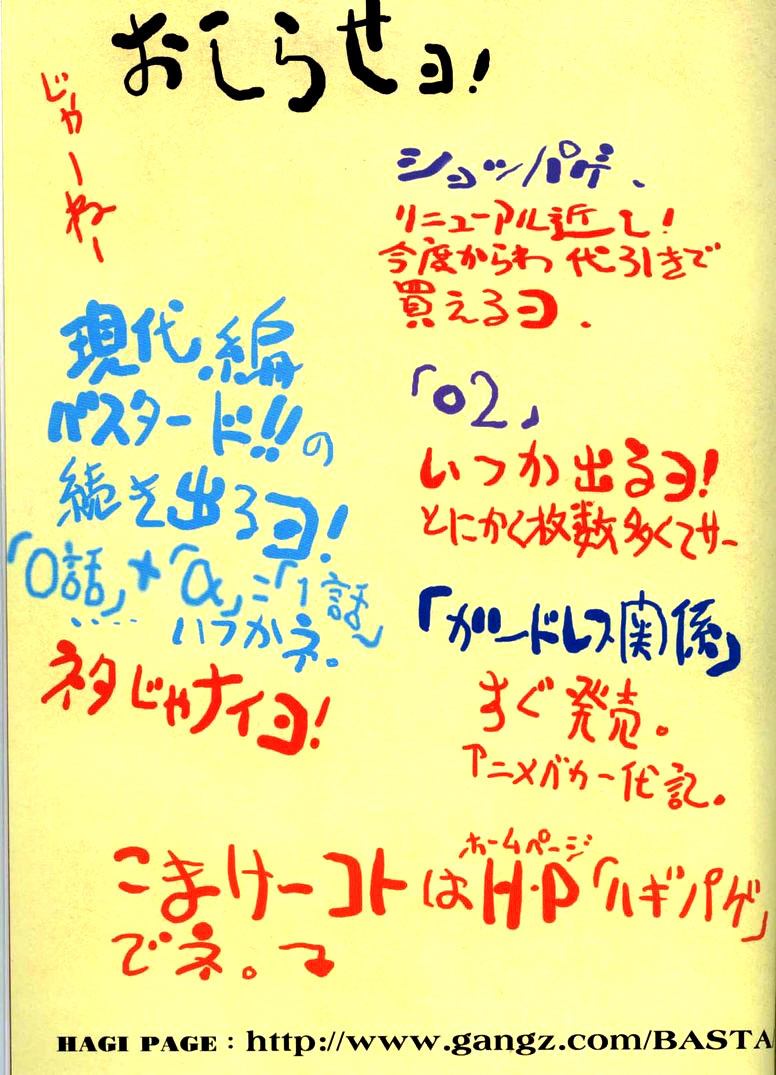 おしらせヨ!
ショッパゲ、
リニューアル近し!
今度からわ代引きで
買えるヨ.
「02」
いつか出るヨ!
とにかく枚数多くてサー
「ガードレス関係」
すぐ発売。
アニメバカ一代記。
現代編
バスタード!!の
続き出るヨ!
「0話」+「α」=「1話~」
……いつかネ。
ネタじゃナイヨ!
こまけーコトはH・P「ハギパゲ」
ホームページ
でネ。
じゃーねー
HAGI PAGE : http://www.gangz.com/BASTA